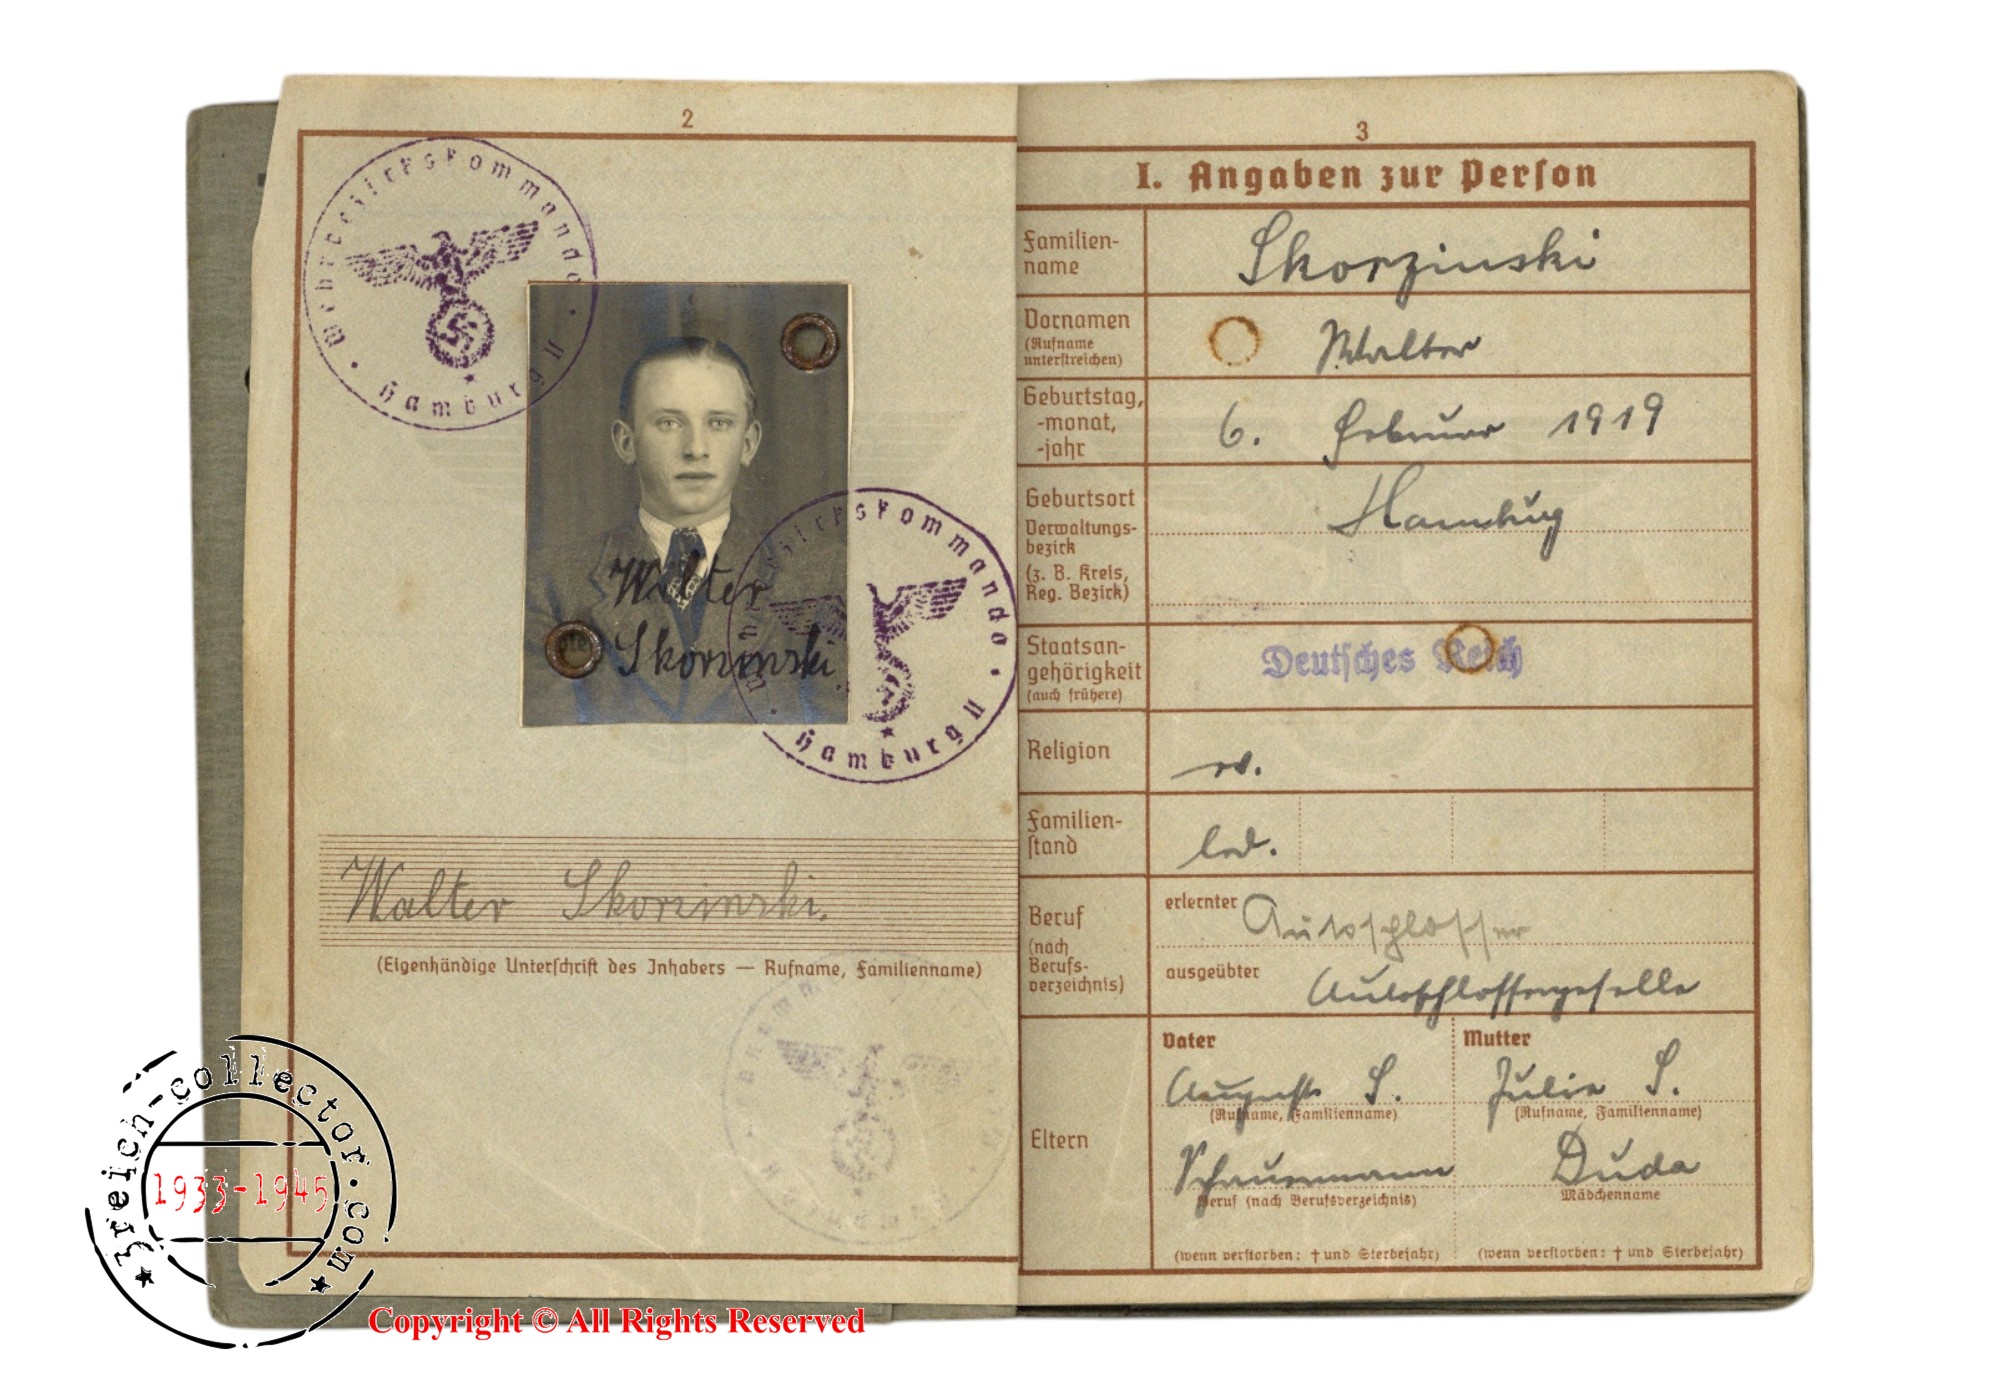 2
Wehrbezirkskommando
Hamburg II
Walter
Skorzinski
Wehrbezirkskommando
Hamburg II
Walter Skorzinski.
(Eigenhändige Unterschrift des Inhabers — Rufname, Familienname)
3
I. Angaben zur Person
Familien-
name
Skorzinski
Vornamen
(Rufname
unterstreichen)
Walter
Geburtstag,
-monat,
-jahr
6. Februar 1919
Geburtsort
Verwaltungs-
bezirk
(z. B. Kreis,
Reg. Bezirk)
Hamburg
Staatsan-
gehörigkeit
(auch frühere)
Deutsches Reich
Religion
ev.
Familien-
stand
led.
Beruf
(nach
Berufs-
verzeichnis)
erlernter Autoschlosser
ausgeübter Autoschlossergeselle
Eltern
Vater
August S.
(Rufname, Familienname)
Schauermann
Beruf (nach Berufsverzeichnis)
(wenn verstorben: † und Sterbejahr)
Mutter
Julie S.
(Rufname, Familienname)
Duda
Mädchenname
(wenn verstorben: † und Sterbejahr)
3reich-collector.com
1933-1945
Copyright © All Rights Reserved